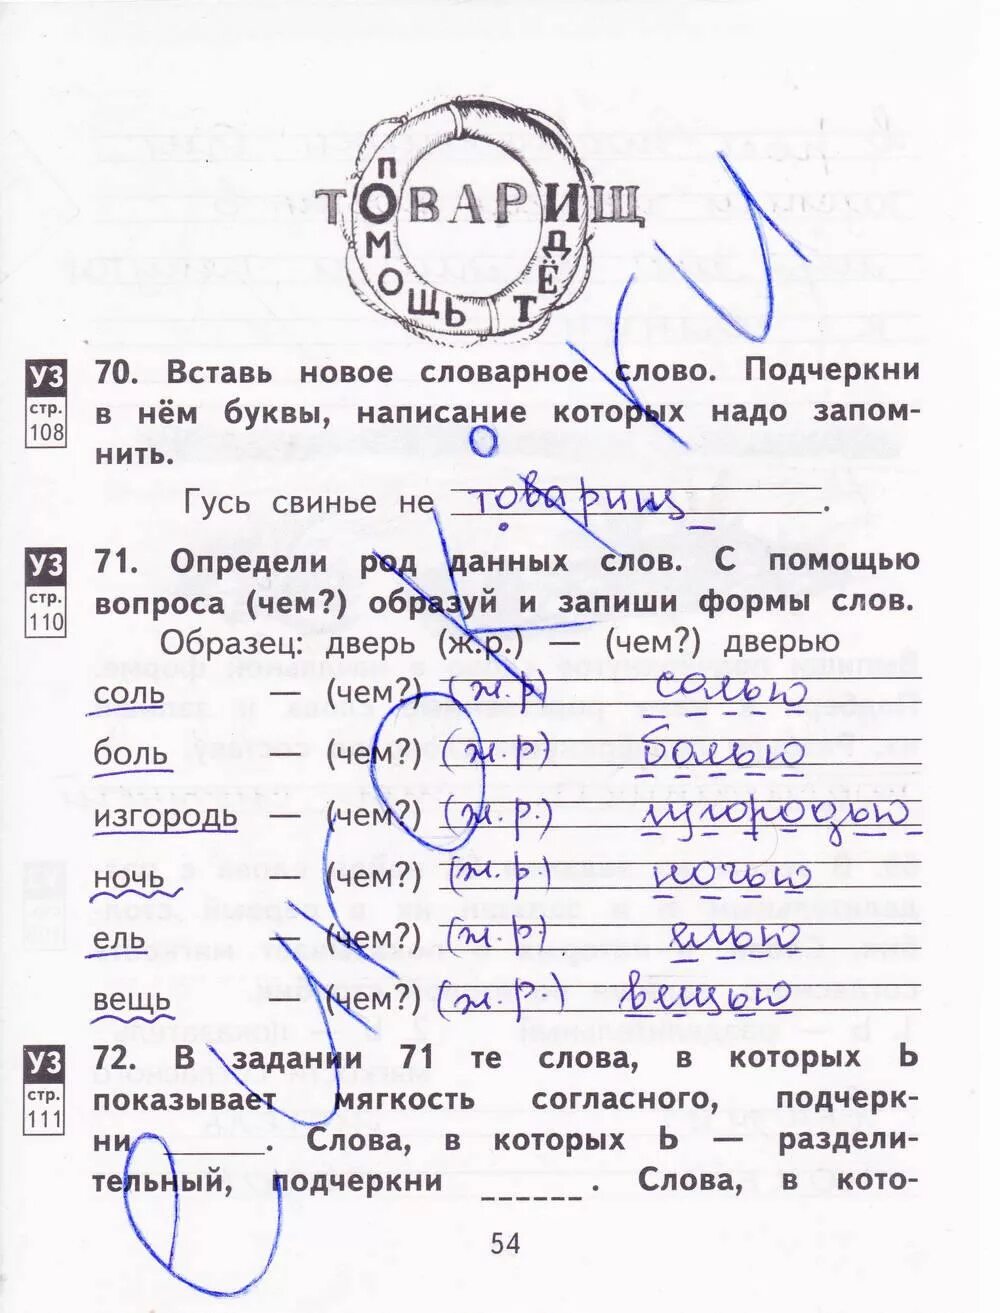 ТОВАРИЩ
ПОМОЩЬ
ИДЁТ
УЗ
стр.
108
70. Вставь новое словарное слово. Подчеркни
в нём буквы, написание которых надо запом-
нить.
Гусь свинье не товарищ.
УЗ
стр.
110
71. Определи род данных слов. С помощью
вопроса (чем?) образуй и запиши формы слов.
Образец: дверь (ж.р.) (чем?) дверью
соль — (чем?) (ж.р) солью
боль — (чем?) (ж.р) болью
изгородь — (чем?) (ж.р.) изгородью
ночь — (чем?) (ж.р) ночью
ель — (чем?) (ж.р) елью
вещь — (чем?) (ж.р.) вещью
УЗ
стр.
111
72. В задании 71 те слова, в которых Ь
показывает мягкость согласного, подчерк-
ни ______. Слова, в которых Ь — раздели-
тельный, подчеркни ______. Слова, в кото-
54